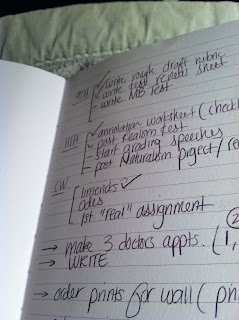 9TH
✓ write rough draft rubric
- write test review sheet
- write MB Test
11TH
✓ annotation worksheet (check
- post Realism test
- start grading speeches
- post Naturalism project/re
CW
limericks ✓
odes
1st "real" assignment
→ make 3 doctors appts. (1,
→ WRITE
→ order prints for wall (ph